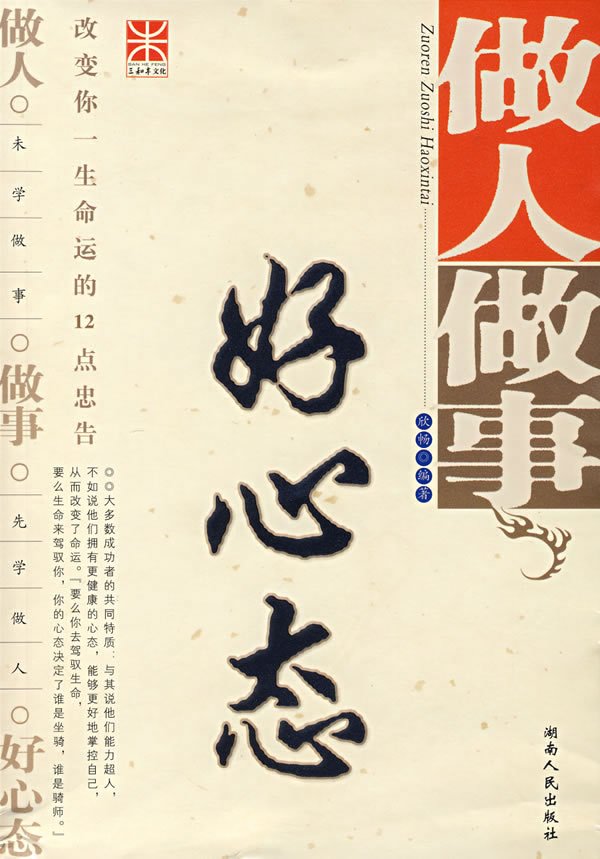 做人
做事
Zuoren Zuoshi Haoxintai
欣畅◎编著
好心态
湖南人民出版社
SAN HE FENG
三和丰文化
改变你一生命运的12点忠告
◎◎大多数成功者的共同特质：与其说他们能力超人，
不如说他们拥有更健康的心态，能够更好地掌控自己，
从而改变了命运。『要么你去驾驭生命，
要么生命来驾驭你，你的心态决定了谁是坐骑，谁是骑师。』
做人○未学做事○做事○先学做人○好心态